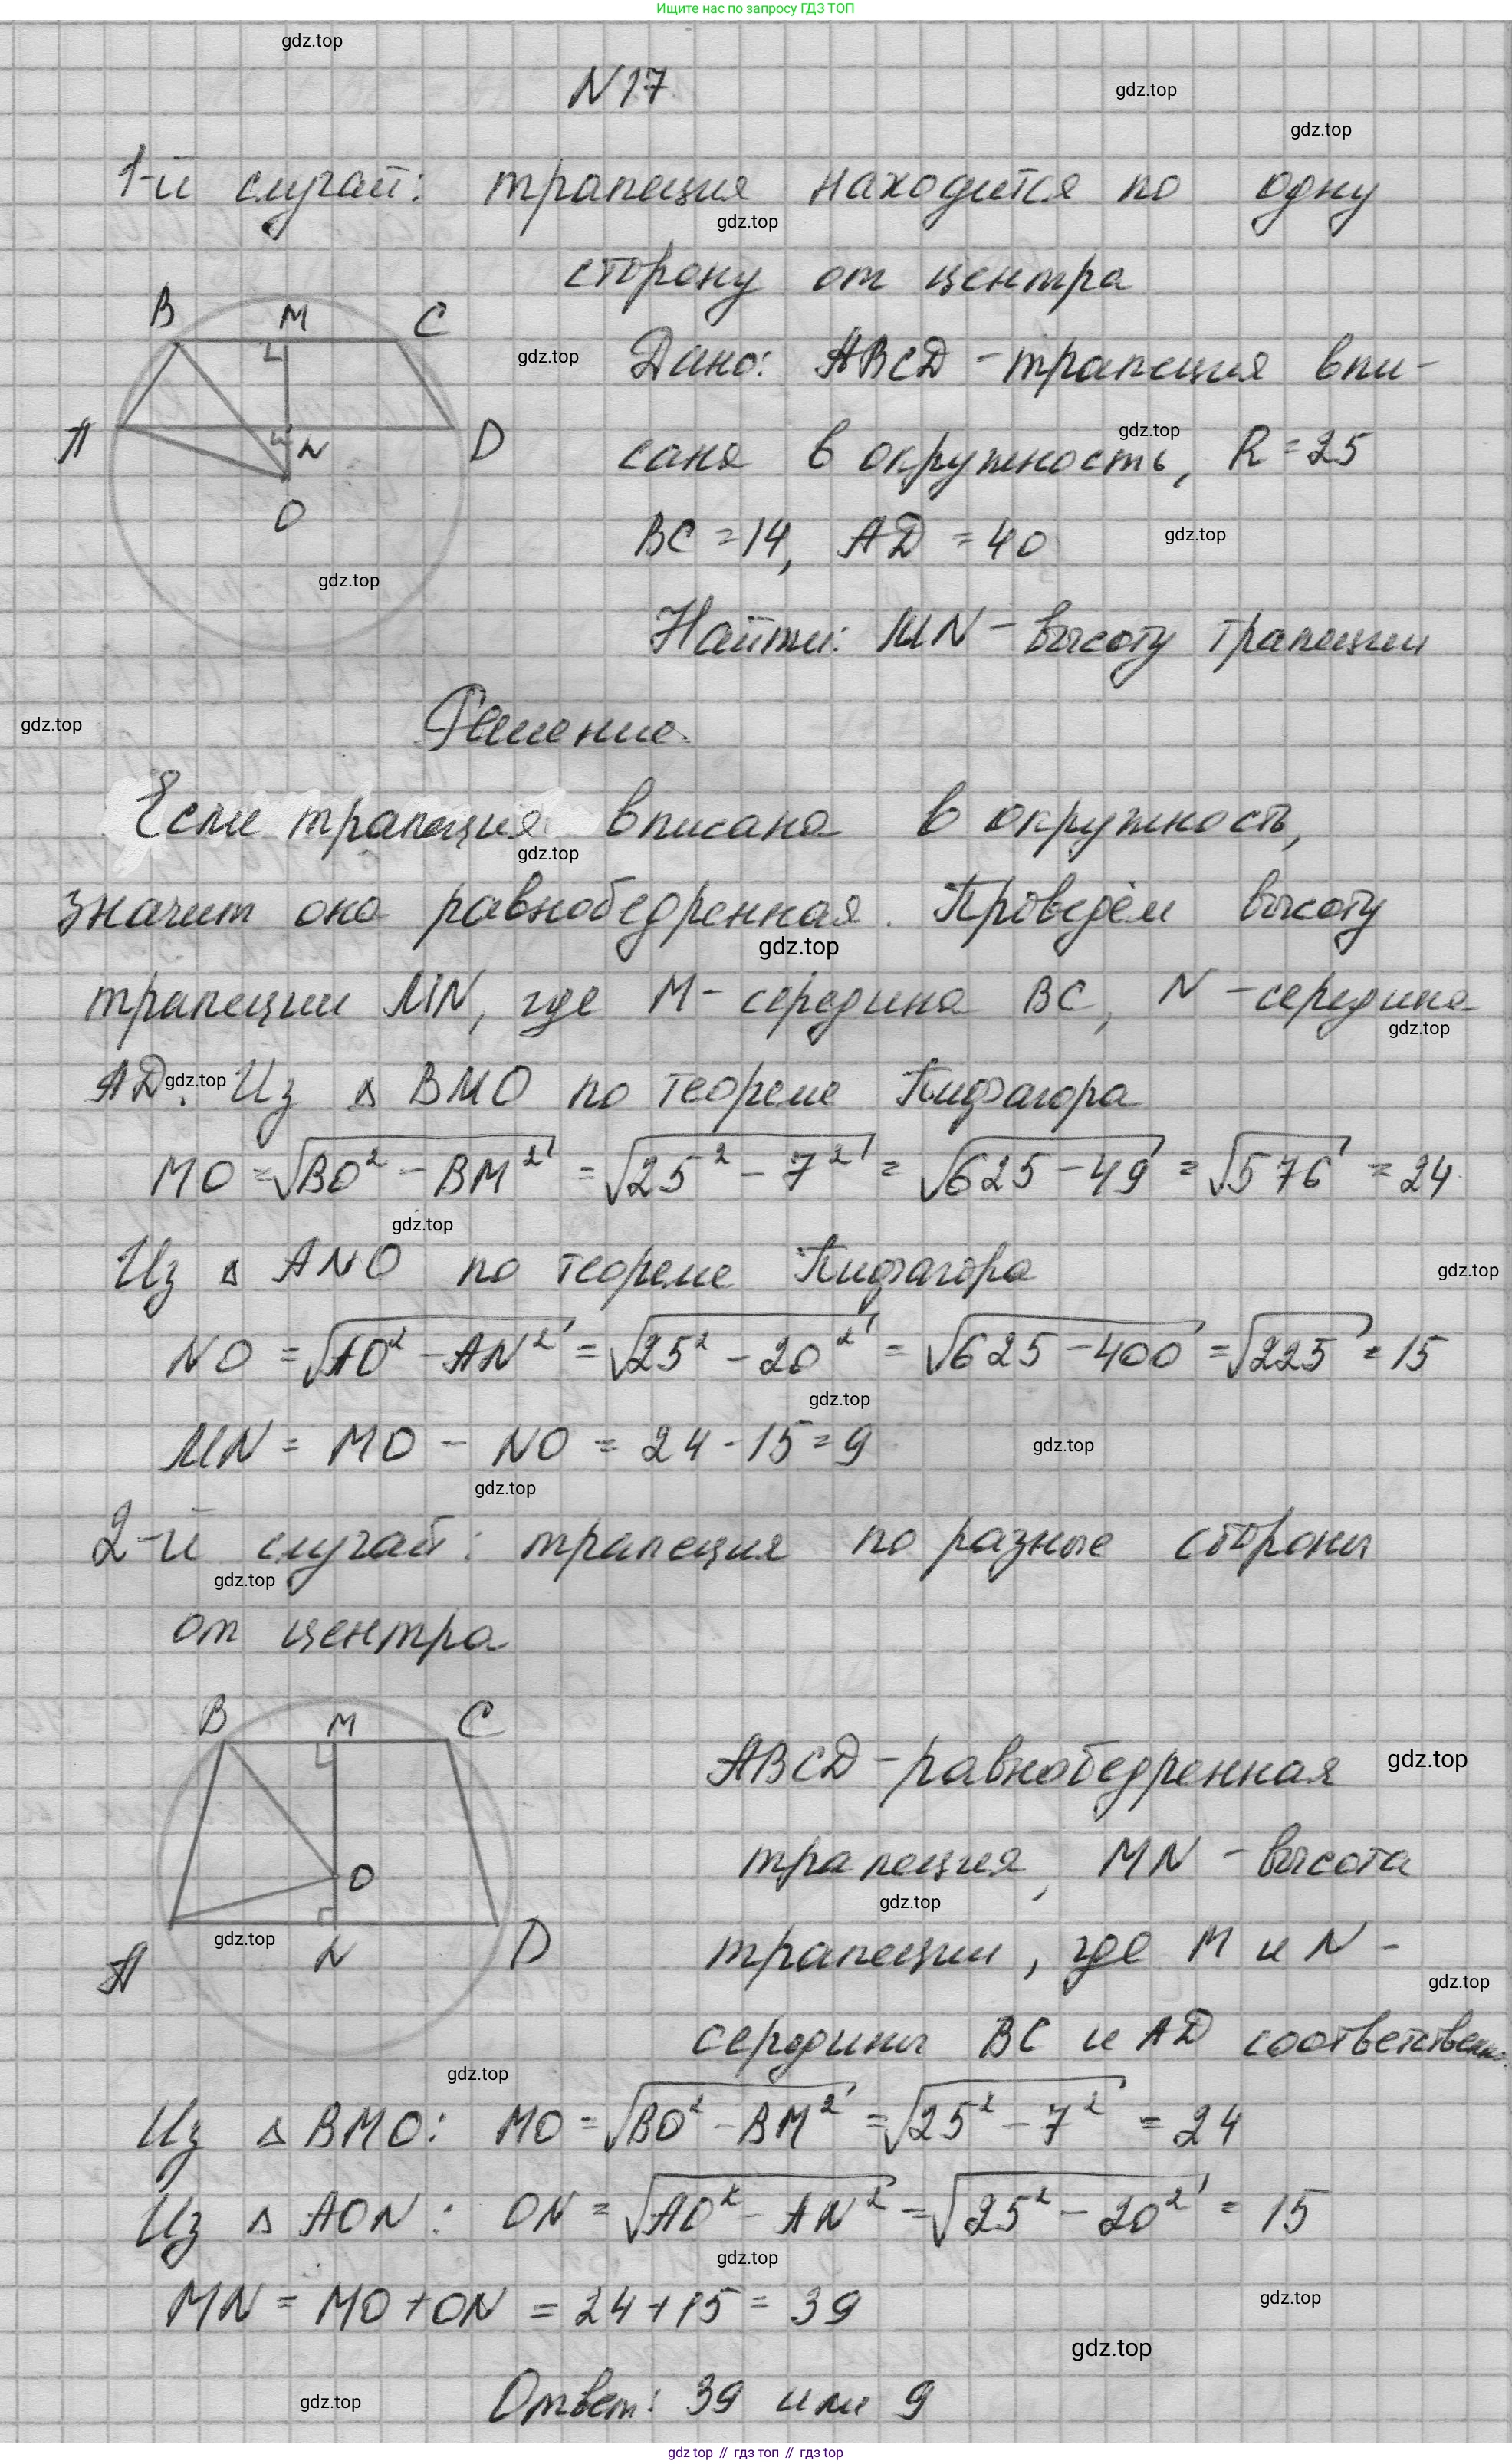 Ищите нас по запросу ГДЗ ТОП
gdz.top
N17
gdz.top
gdz.top
1-й случай: трапеция находится по одну
gdz.top
сторону от центра
B M C
gdz.top
Дано: ABCD - трапеция впи-
A N D
gdz.top
сана в окружность, R = 25
O
BC = 14, AD = 40
gdz.top
gdz.top
Найти: MN - высоту трапеции
gdz.top
Решение.
Если трапеция вписана в окружность,
gdz.top
значит она равнобедренная. Проведём высоту
gdz.top
трапеции MN, где M - середина BC, N - середина
gdz.top
AD. Из △ BMO по теореме Пифагора
gdz.top
MO = √BO² - BM² = √25² - 7² = √625 - 49 = √576 = 24
gdz.top
Из △ ANO по теореме Пифагора
gdz.top
NO = √AO² - AN² = √25² - 20² = √625 - 400 = √225 = 15
gdz.top
MN = MO - NO = 24 - 15 = 9
gdz.top
gdz.top
2-й случай: трапеция по разные стороны
gdz.top
от центра
B M C
ABCD - равнобедренная
gdz.top
O
трапеция, MN - высота
gdz.top
gdz.top
A N D
трапеции, где M и N -
gdz.top
середины BC и AD соответственно.
gdz.top
Из △ BMO: MO = √BO² - BM² = √25² - 7² = 24
Из △ AON: ON = √AO² - AN² = √25² - 20² = 15
gdz.top
MN = MO + ON = 24 + 15 = 39
gdz.top
gdz.top
gdz.top
Ответ: 39 или 9
gdz.top // гдз топ // гдз top